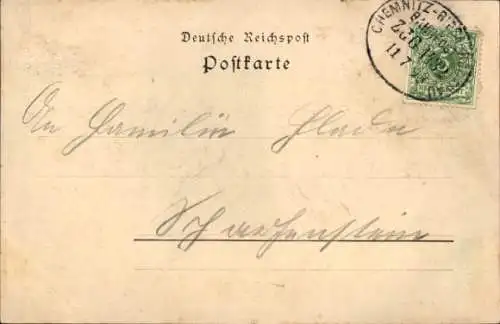 Deutsche Reichspost
Postkarte
CHEMNITZ-RI
ZUG 1
11 7
An Familie
Scharfenstein